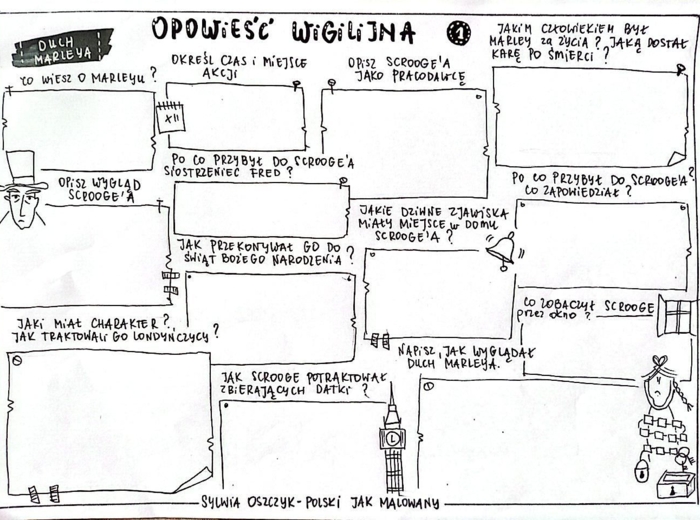 OPOWIEŚĆ WIGILIJNA 1
DUCH
MARLEYA
CO WIESZ O MARLEYU?
OKREŚL CZAS i MIEJSCE
AKCJI
XII
OPISZ SCROOGE'A
JAKO PRACODAWCĘ
JAKIM CZŁOWIEKIEM BYŁ
MARLEY za ŻYCIA? JAKĄ DOSTAŁ
KARĘ PO ŚMIERCI?
OPISZ WYGLĄD
SCROOGE'A
PO CO PRZYBYŁ DO SCROOGE'A
SIOSTRZENIEC FRED?
JAKIE DZIWNE ZJAWISKA
MIAŁY MIEJSCE w DOMU
SCROOGE'A?
PO CO PRZYBYŁ DO SCROOGE'A?
CO ZAPOWIEDZIAŁ?
JAK PRZEKONYWAŁ GO DO
ŚWIĄT BOŻEGO NARODZENIA?
CO ZOBACZYŁ SCROOGE
przez okno?
JAKI MIAŁ CHARAKTER?
JAK TRAKTOWALI GO LONDYŃCZYCY?
JAK SCROOGE POTRAKTOWAŁ
ZBIERAJĄCYCH DATKI?
NAPISZ, JAK WYGLĄDAŁ
DUCH MARLEYA.
SYLWIA OSZCZYK - POLSKI JAK MALOWANY